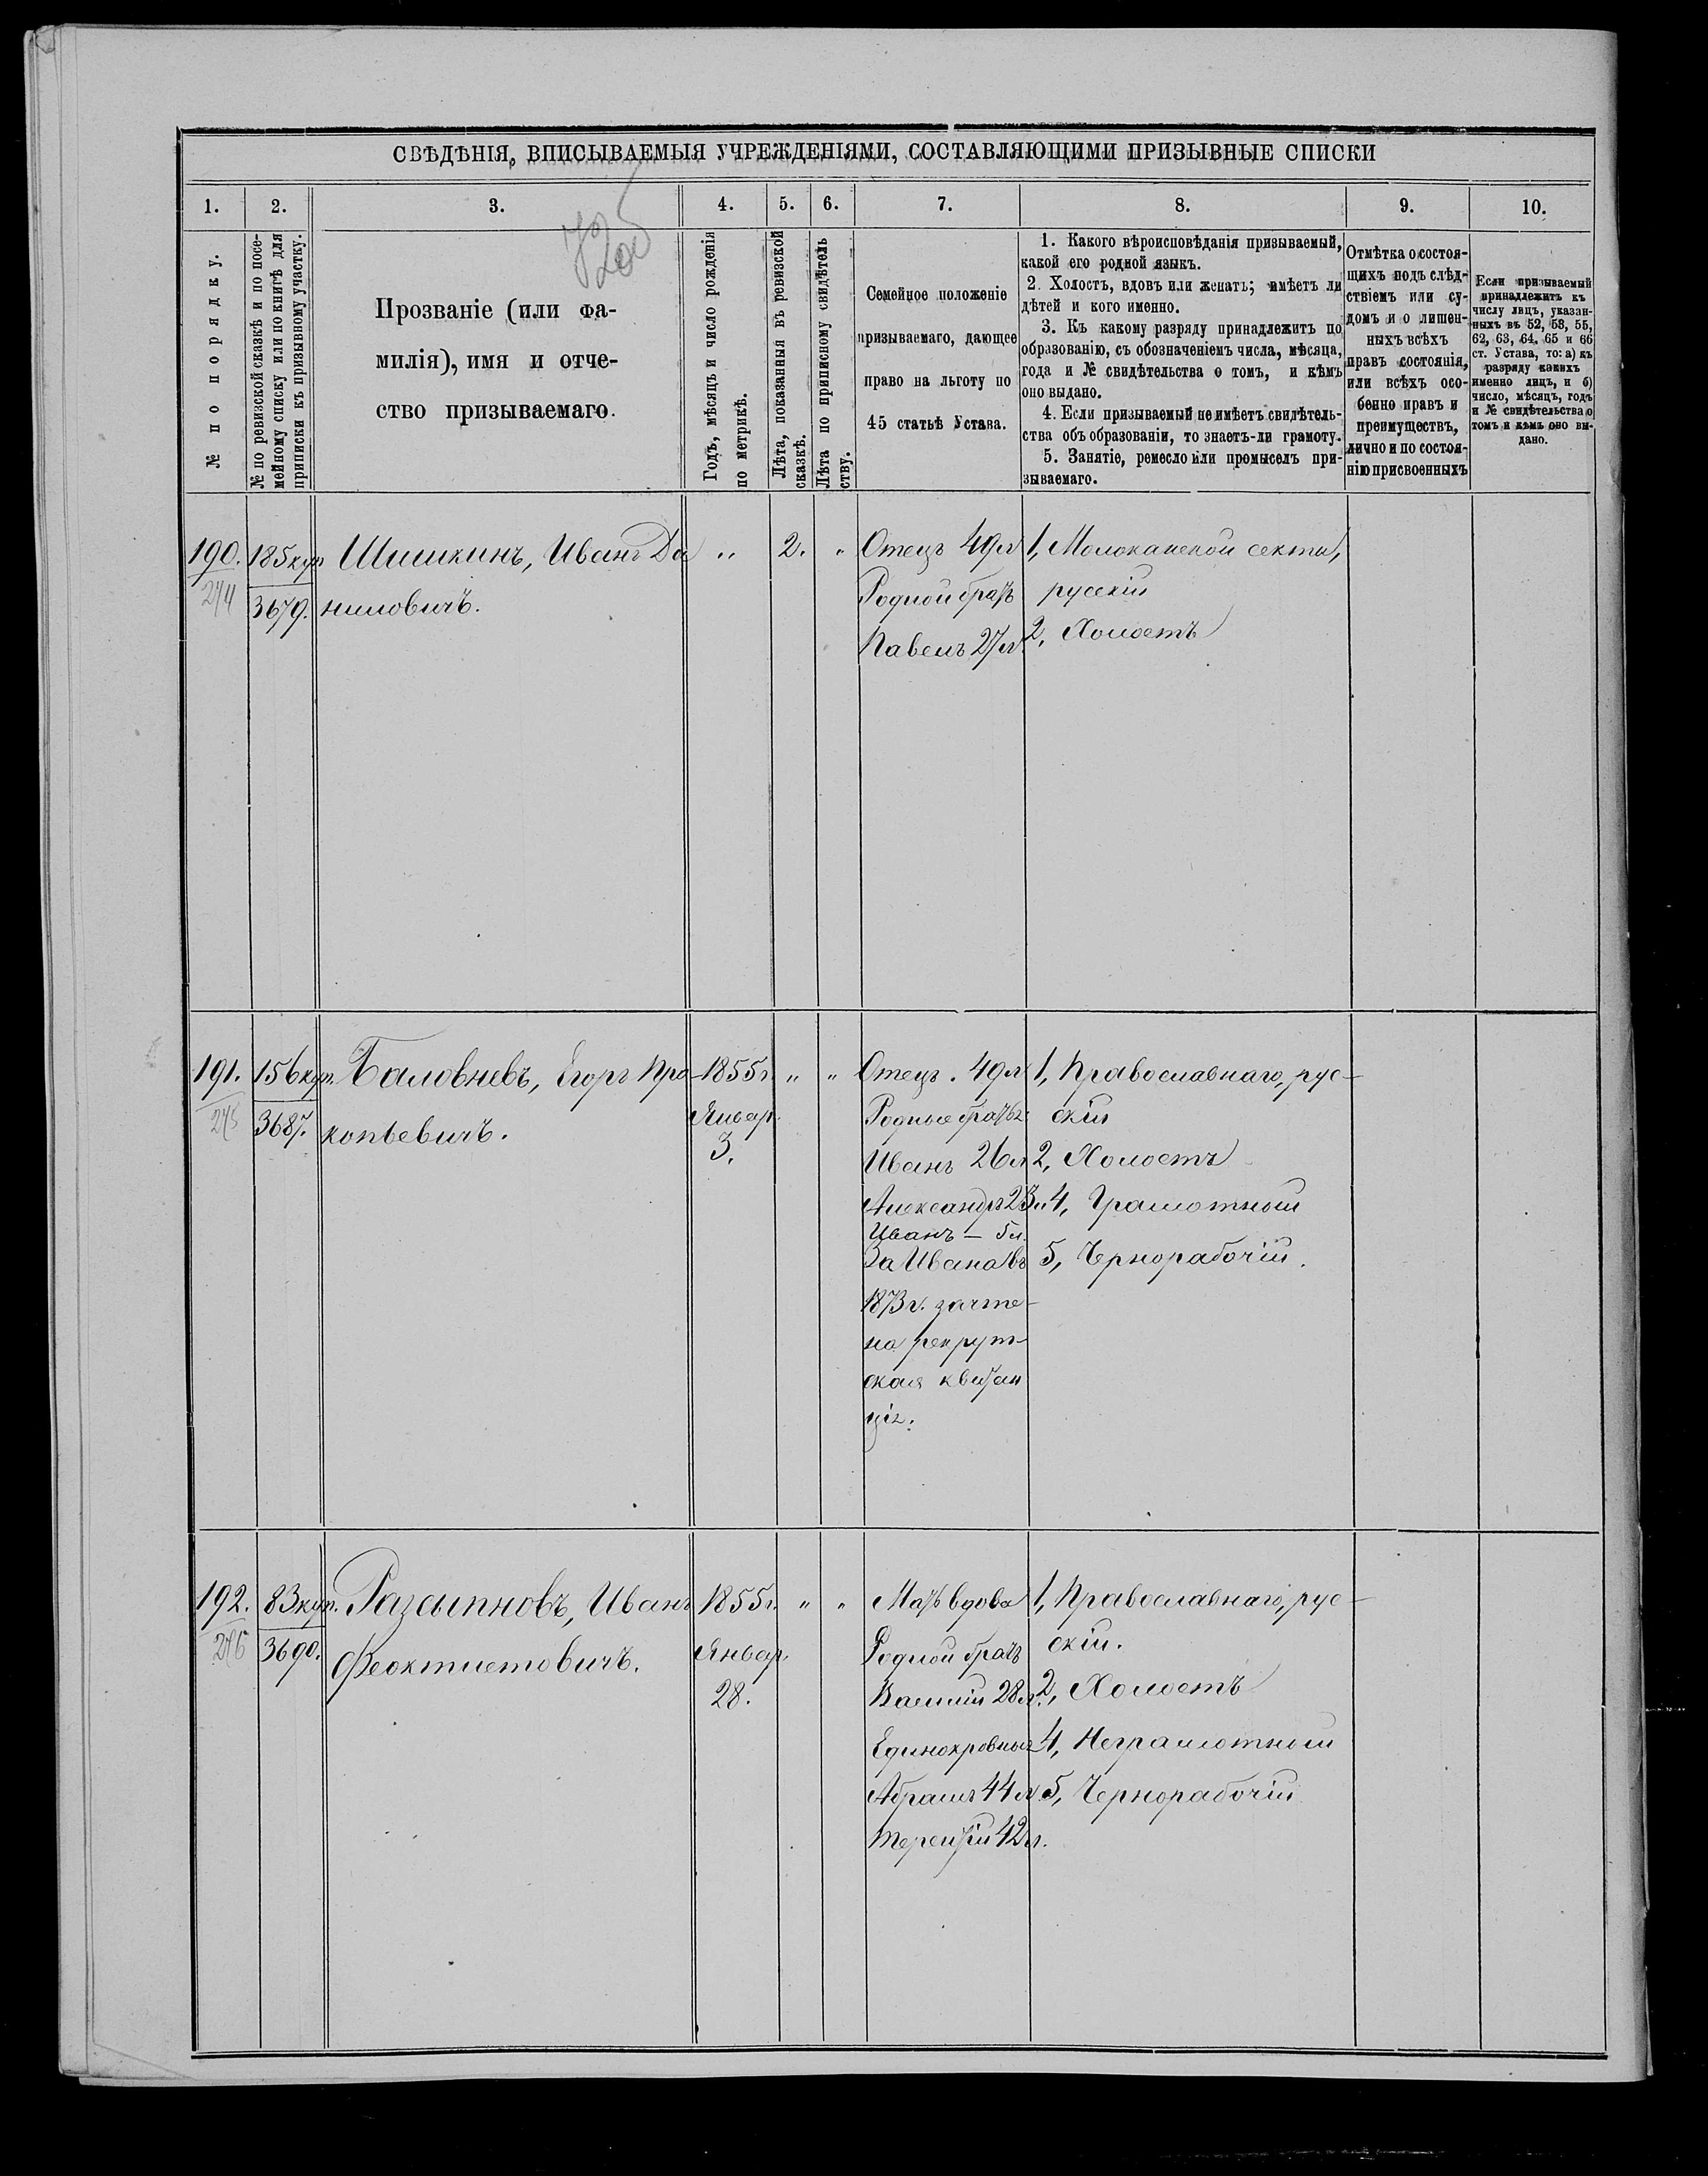 СВѢДѢНІЯ, ВПИСЫВАЕМЫЯ УЧРЕЖДЕНІЯМИ, СОСТАВЛЯЮЩИМИ ПРИЗЫВНЫЕ СПИСКИ
1.
2.
3.
4.
5.
6.
7.
8.
9.
10.
№ по порядку.
№ по ревизской сказкѣ и по посе-
мейному списку или по книгѣ для
приписки къ призывному участку.
Прозваніе (или фа-
милія), имя и отче-
ство призываемаго.
Годъ, мѣсяцъ и число рожденія
по метрикѣ.
Лѣта, показанныя въ ревизской
сказкѣ.
Лѣта по приписному свидѣтель
ству.
Семейное положеніе
призываемаго, дающее
право на льготу по
45 статьѣ Устава.
1. Какого вѣроисповѣданія призываемый,
какой его родной языкъ.
2. Холостъ, вдовъ или женатъ; имѣетъ ли
дѣтей и кого именно.
3. Къ какому разряду принадлежитъ по
образованію, съ обозначеніемъ числа, мѣсяца,
года и № свидѣтельства о томъ, и кѣмъ
оно выдано.
4. Если призываемый не имѣетъ свидѣтель-
ства объ образованіи, то знаетъ-ли грамоту.
5. Занятіе, ремесло или промыселъ при-
зываемаго.
Отмѣтка о состоя-
щихъ подъ слѣд-
ствіемъ или су-
домъ и о лишен-
ныхъ всѣхъ
правъ состоянія,
или всѣхъ осо-
бенно правъ и
преимуществъ,
лично и по состоя-
нію присвоенныхъ
Если призываемый
принадлежитъ къ
числу лицъ, указан-
ныхъ въ 52, 53, 55,
62, 63, 64, 65 и 66
ст. Устава, то: а) къ
разряду какихъ
именно лицъ, и б)
число, мѣсяцъ, годъ
и № свидѣтельства о
томъ и кѣмъ оно вы-
дано.
190.
274
185 куп
3679.
Шишкинъ, Иванъ Да
ниловичъ.
"
2.
"
Отецъ 49 л
Родной братъ
Павелъ 27 л.
1, Молоканской секты,
русскій
2, Холостъ
191.
275
156 куп.
3687.
Баловневъ, Егоръ Про-
копьевичъ.
1855 г.
Январ.
3.
"
"
Отецъ. 49 л
Родные братья:
Иванъ 26 л
Александръ 23 л.
Иванъ — 5 л.
За Ивана въ
1873 г. зачте-
на рекрут-
ская квитан
ція.
1, Православнаго, рус-
скій
2, Холостъ
4, Грамотный
5, Чернорабочій.
192.
276
83 куп.
3690.
Разсыпновъ, Иванъ
Феоктистовичъ.
1855 г.
Январ.
28.
"
"
Мать вдова
Родной братъ
Василій 28 л.
Единокровные
Абрамъ 44 л.
Терентій 42 л.
1, Православнаго, рус-
скій.
2, Холостъ
4, Неграмотный
5, Чернорабочій